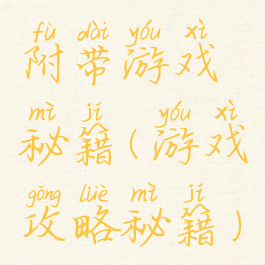 fù dài yóu xì
附带游戏
mì jí yóu xì
秘籍(游戏
gōng lüè mì jí
攻略秘籍)